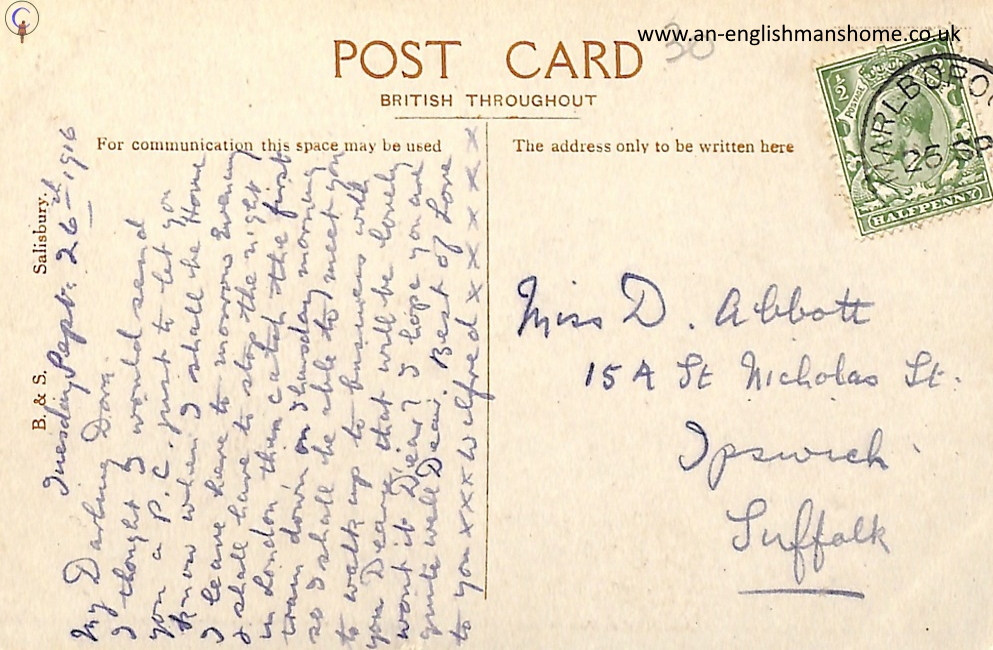 www.an-englishmanshome.co.uk
30
POST CARD
BRITISH THROUGHOUT
For communication this space may be used
The address only to be written here
B. & S. Salisbury.
Tuesday Sept. 26th 1916
My Darling Dora
I thought I would send
you a P.C. just to let you
know when I shall be Home
I leave here to morrow Evening
I shall have to stop the night
in London then catch the first
train down on Thursday morning
so I shall be able to meet you
to walk up to business with
you Dear, that will be lovely
wont it Dear? I hope you are
quite well Dear. Best of Love
to you xxx Wilfred x x x x x x x x
Miss D. Abbott
15A St Nicholas St.
Ipswich
Suffolk
MARLBORO
26 SP
POSTAGE
1/2
HALFPENNY